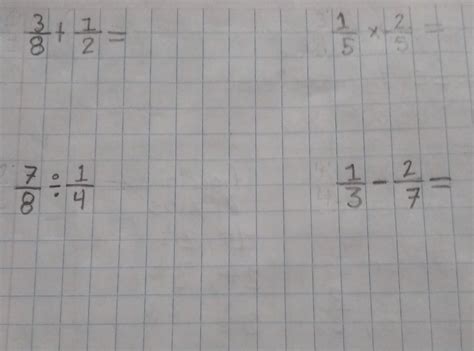 3/8 + 1/2 =
1/5 × 2/5 =
7/8 ÷ 1/4
1/3 - 2/7 =